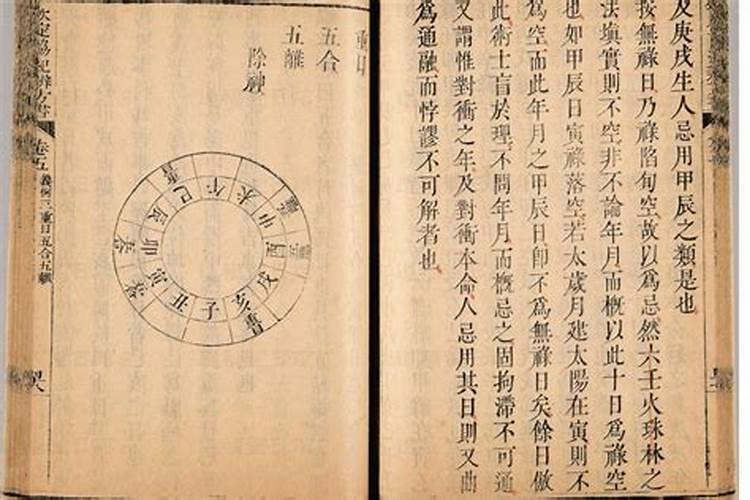 及庚戌生人忌用甲辰之類是也
按無祿日乃祿陷旬空故以爲忌然六壬火珠林之
法填實則不空非不論年月而概以此十日爲祿空
也如甲辰日寅祿落空若太歲月建太陽在寅則不
爲空而此年月之甲辰日卽不爲無祿日矣餘日倣
此術士盲於理不問年月而概忌之固拘滯不可通
又謂惟對衝之年及對衝本命人忌用其日則又曲
爲通融而悖謬不可解者也
重日
五合
五離
除神
子
丑
寅
卯
辰
巳
午
未
申
酉
戌
亥
欽定協紀辨方書
卷五
義例三重日五合五離